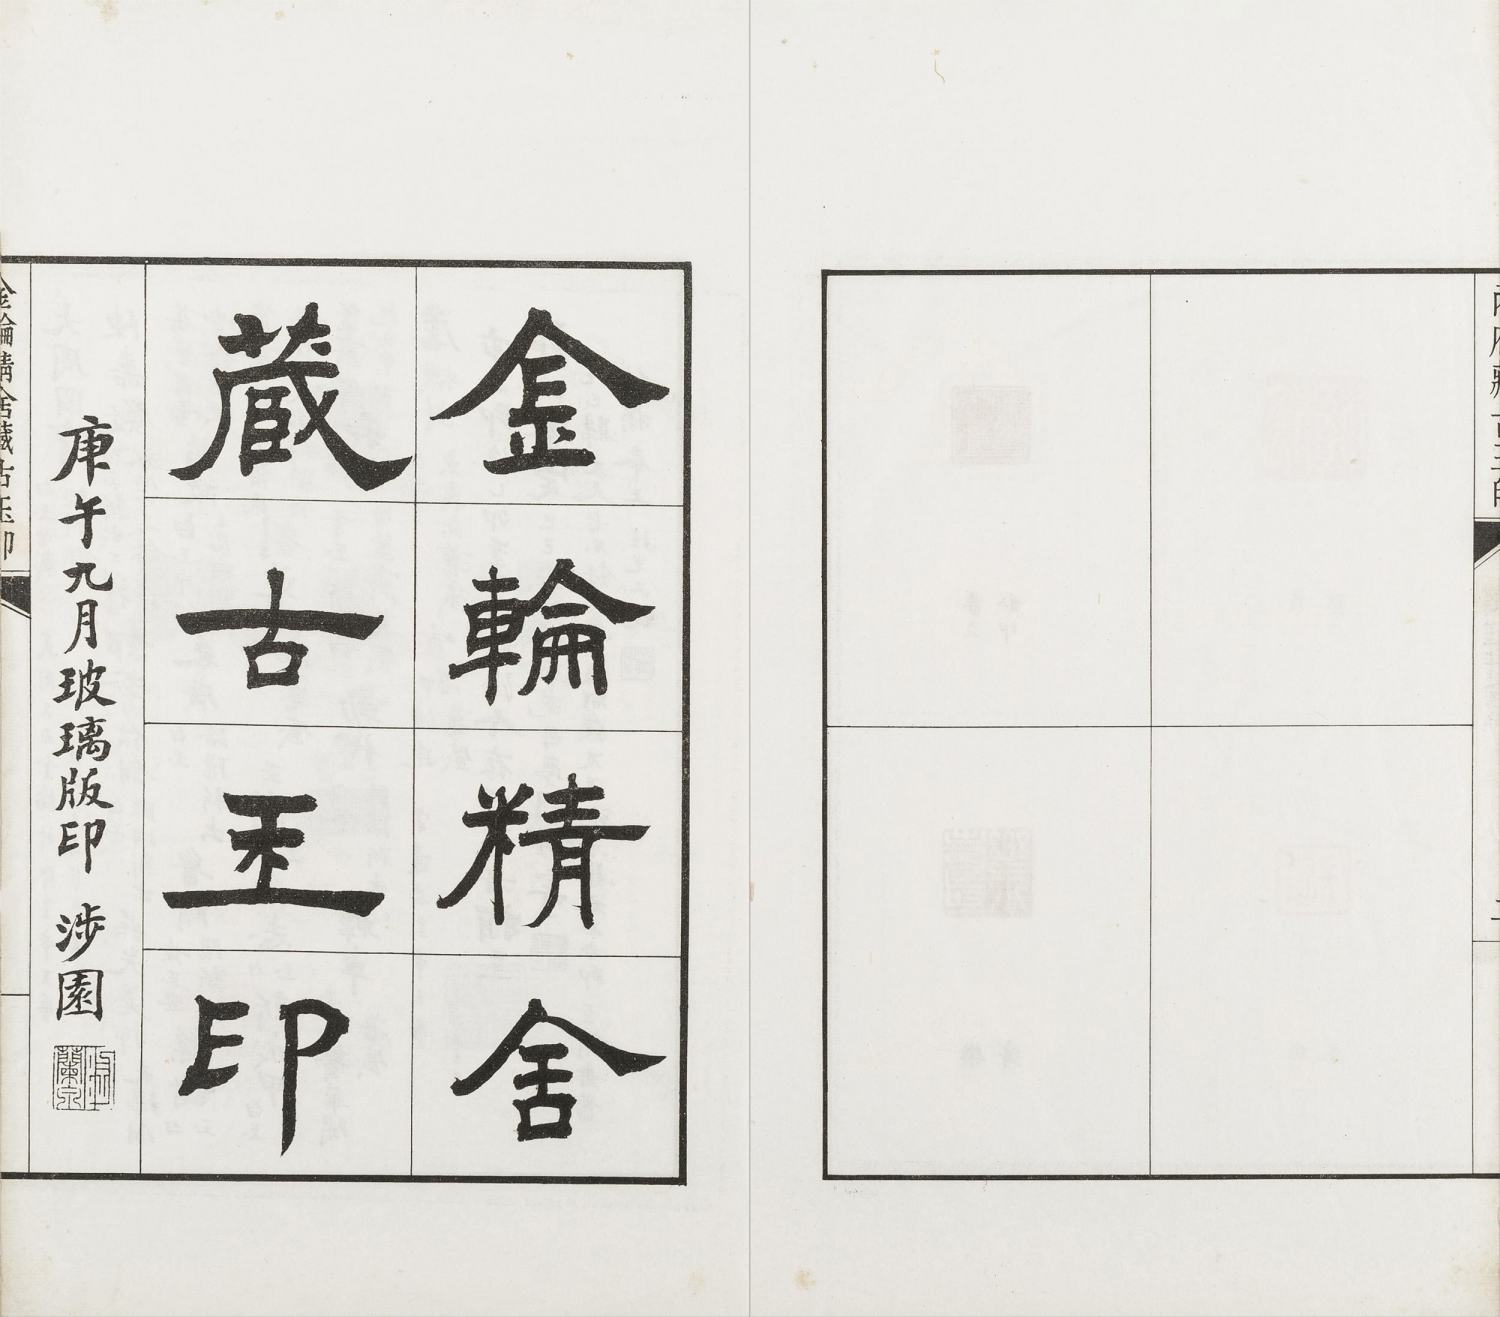 金輪精舍
藏古玉印
庚午九月玻璃版印 涉園
金輪精舍藏古玉印